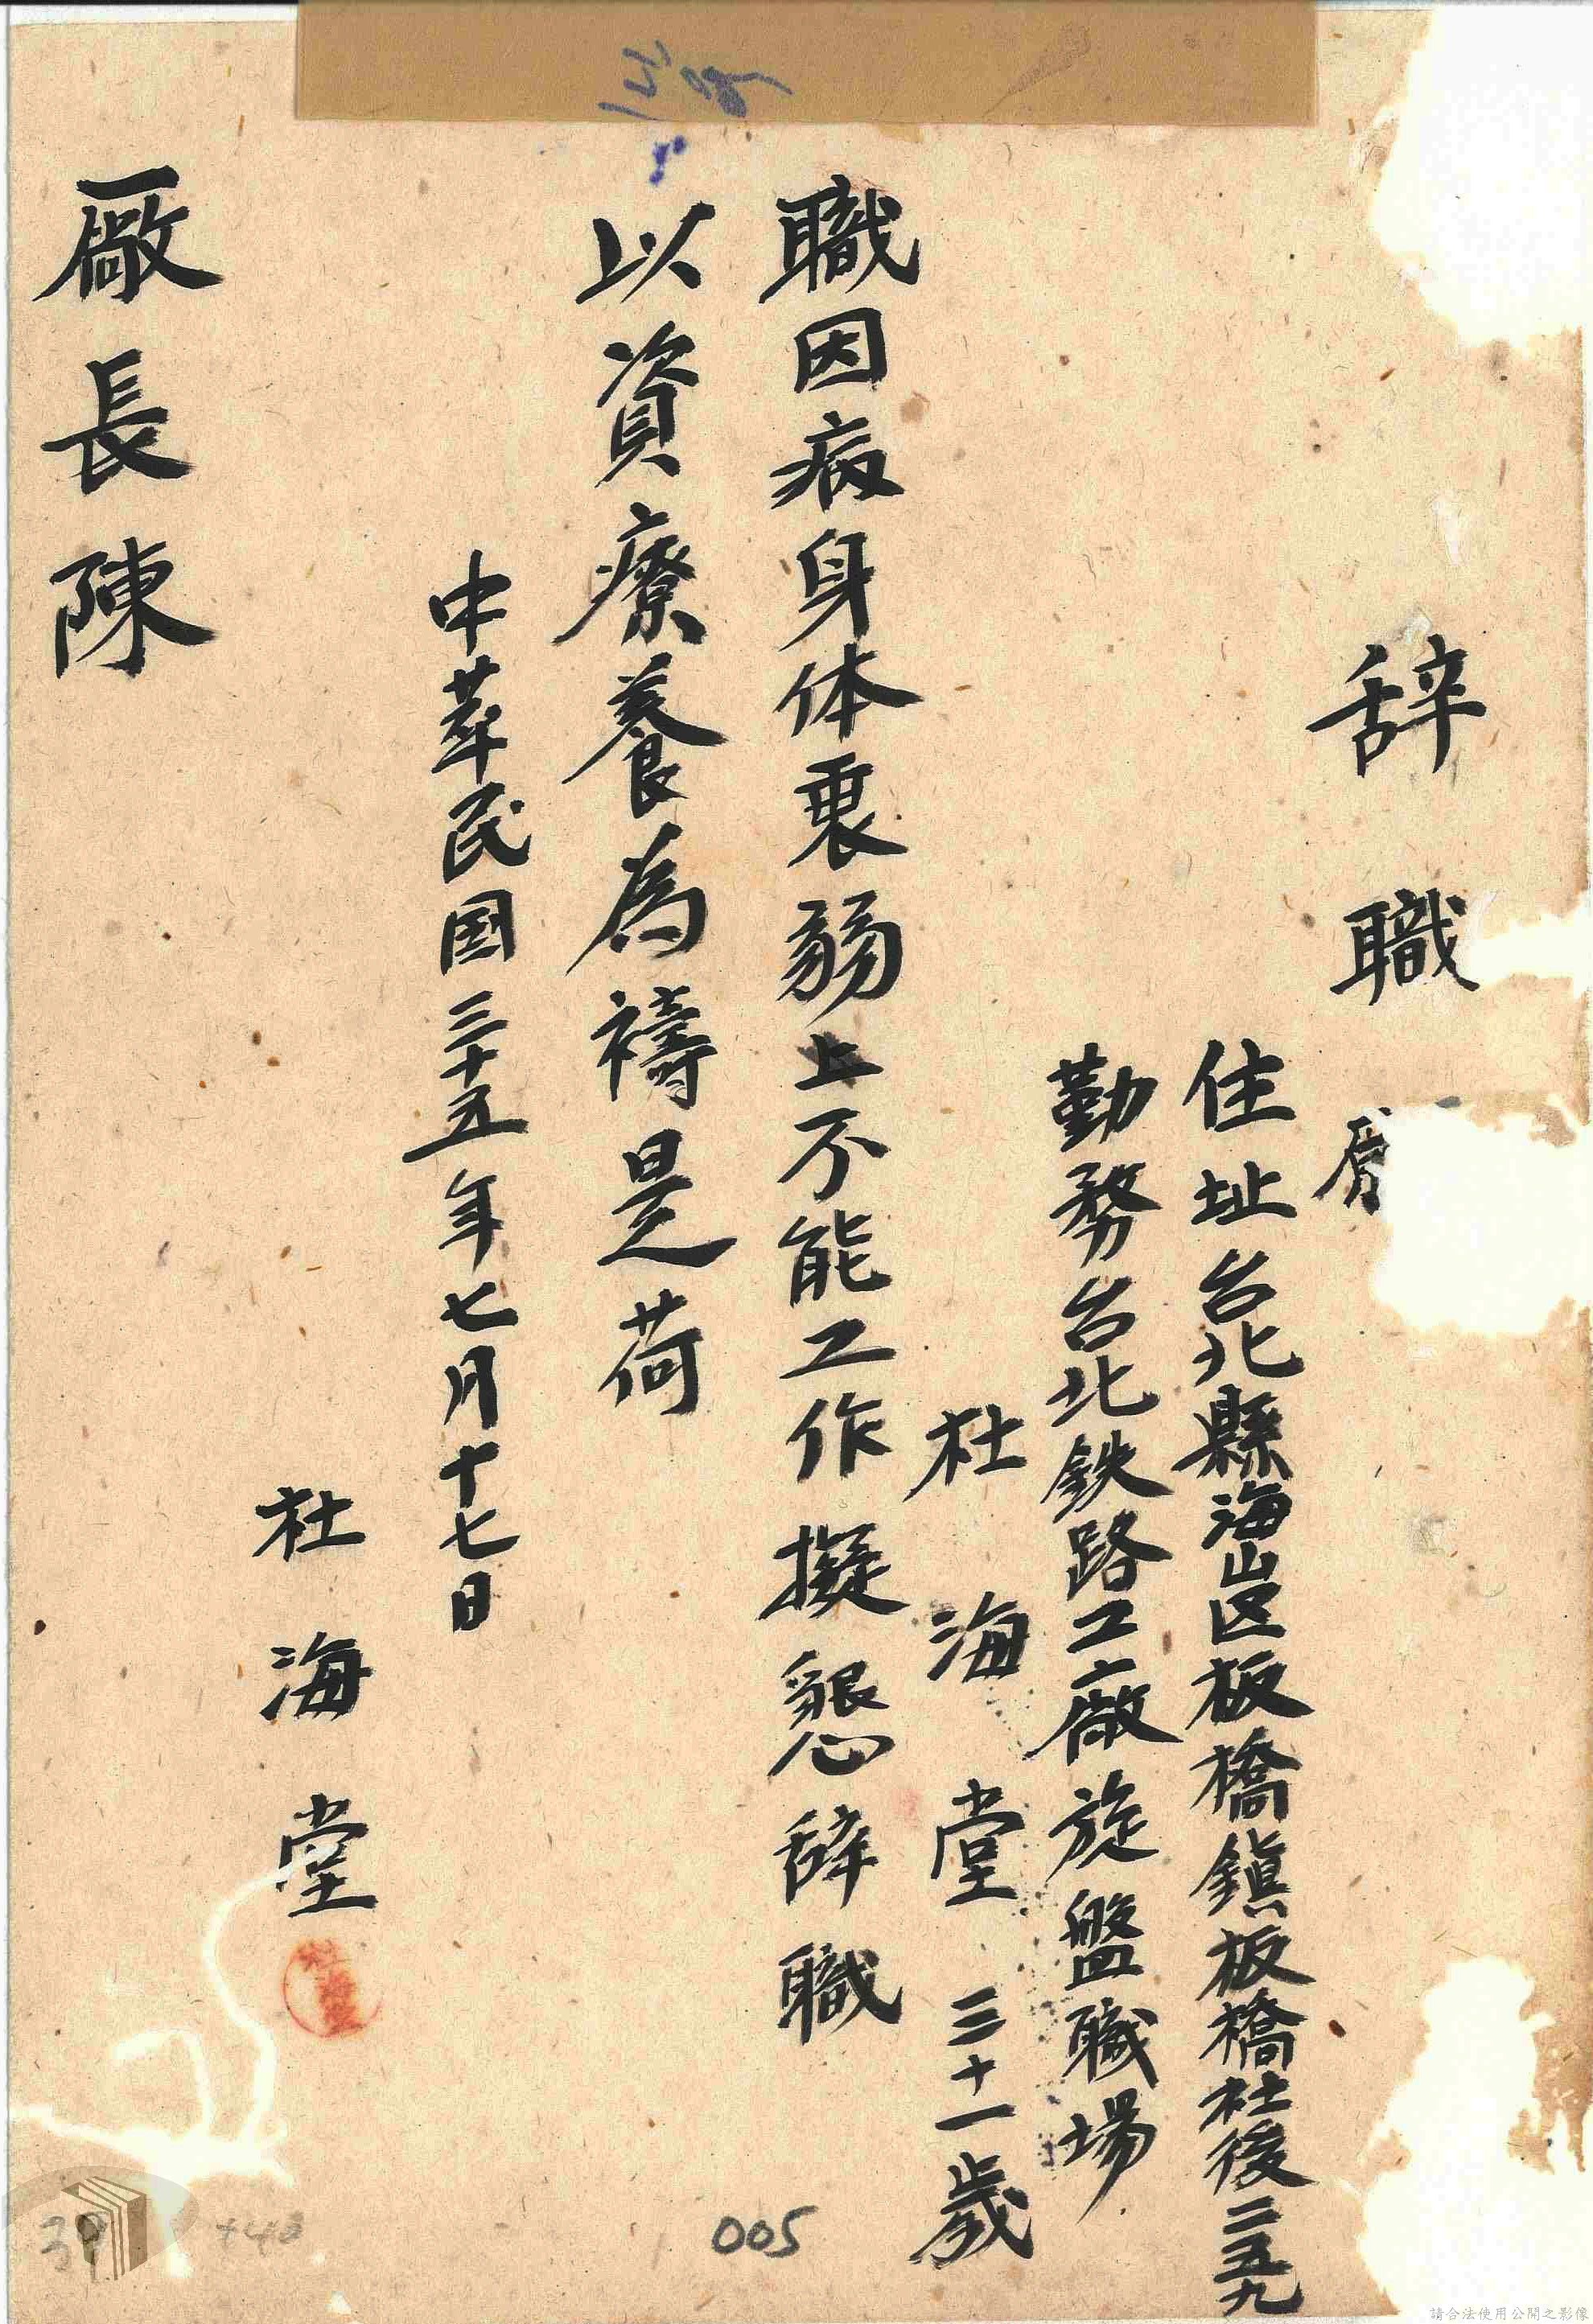 辞職
住址台北縣海山区板橋鎮板橋社後二五九
勤務台北鉄路工廠旋盤職場
杜海堂 三十一歲
職因病身体衰弱上不能工作擬懇辞職
以資療養為禱是荷
中華民国三十五年七月十七日
杜海堂
廠長陳
005
39
請合法使用公開之影像